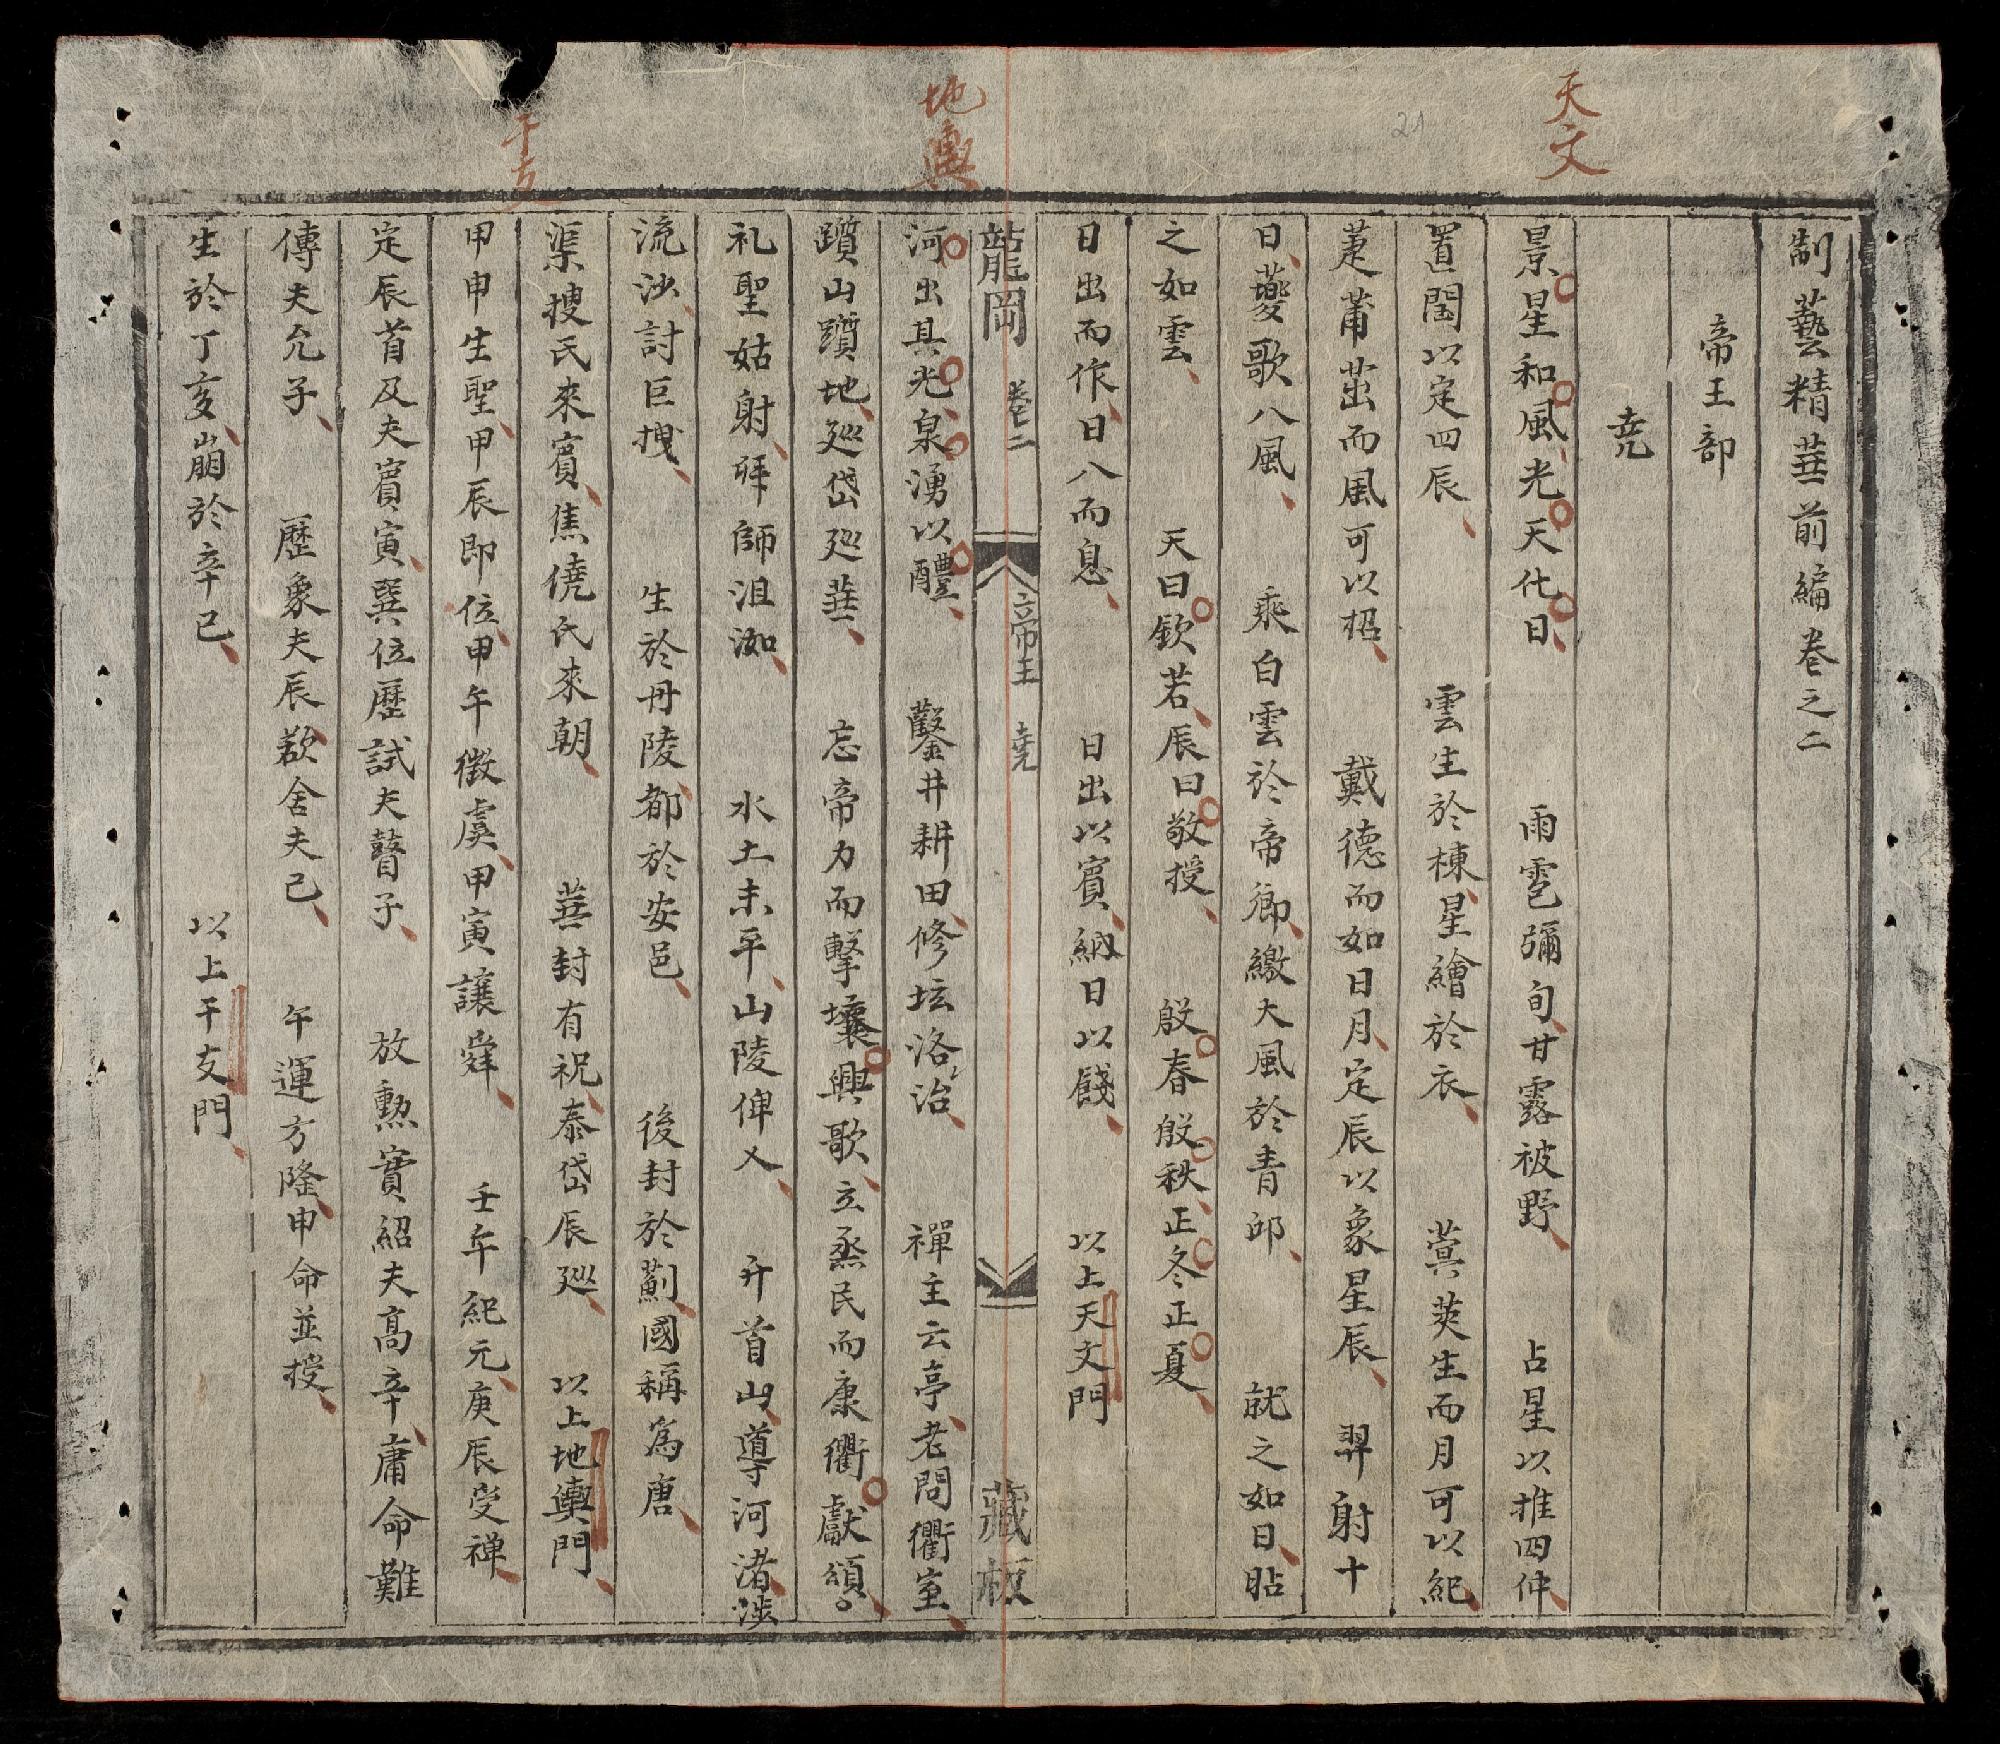 天文
地輿
干支
制藝精華前編卷之二
帝王部
堯
景星和風光天化日 雨雹彌旬甘露被野 占星以推四仲
置閏以定四辰 雲生於棟星繪於衣 蓂莢生而月可以紀
萐莆茁而風可以招 戴德而如日月定辰以象星辰 羿射十
日夔歌八風 乘白雲於帝鄉繳大風於青邱 就之如日瞻
之如雲 天曰欽若辰曰敬授 殷春殷秩正冬正夏
日出而作日入而息 日出以賓納日以餞 以上天文門
龍岡 卷二 帝王 堯 藏板
河出其光泉湧以醴 鑿井耕田修坛洛治 禪主云亭老問衢室
躓山躓地巡岱巡華 忘帝力而擊壤興歌立烝民而康衢獻頌
礼聖姑射拜師沮洳 水土未平山陵俾乂 幵首山導河渚涉
流沙討巨拽 生於丹陵都於安邑 後封於薊國稱為唐
渠搜氏來賓焦僥氏來朝 華封有祝泰岱辰巡 以上地輿門
甲申生聖甲辰即位甲午徵虞甲寅讓舜 壬午紀元庚辰受禅
定辰首及夫賓寅巽位歷試夫瞽子 放勳實紹夫高辛庸命難
傳夫允子 歷象夫辰欲舍夫己 午運方隆申命並授
生於丁亥崩於辛巳 以上干支門